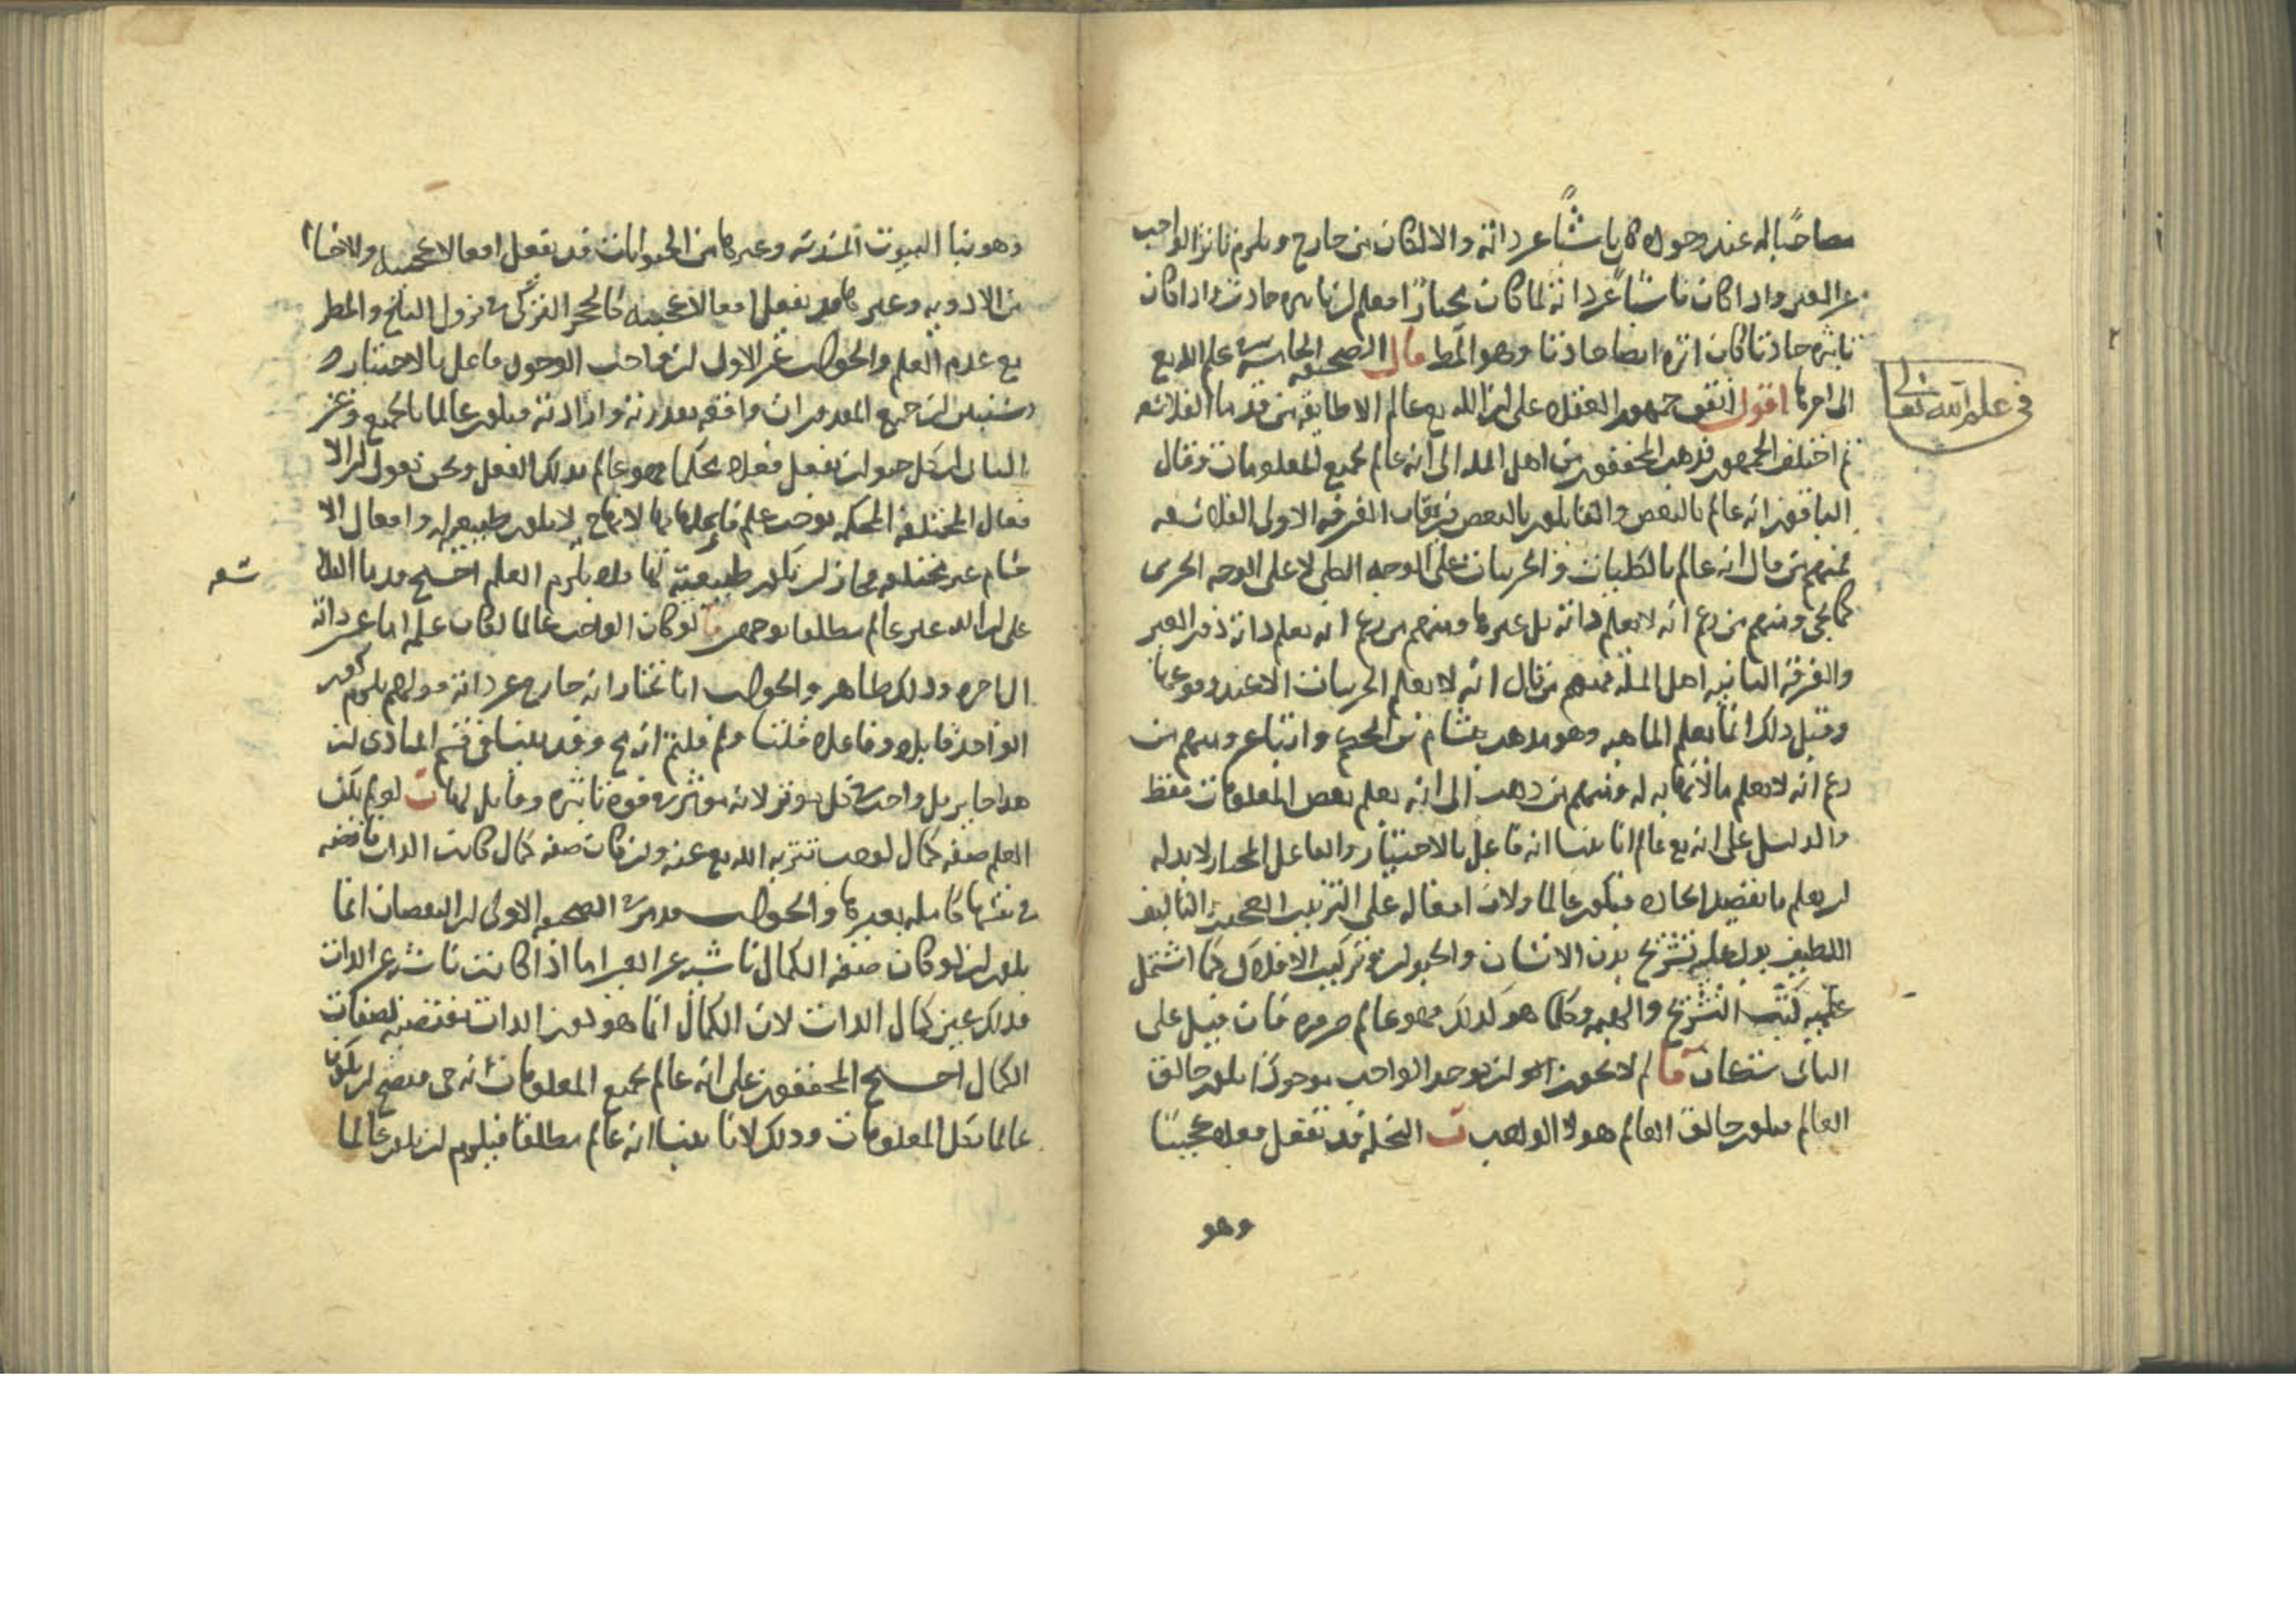 مصاحبا له عند وجوده كان ناشئا عن ذاته والا لكان من خارج ويلزم تاثر الواجب
عن الغير واذا كان ناشئا عن ذاته لما كان مختارا فعلم ان تاثيره حادث واذا كان
تاثيره حادثا كان اثره ايضا حادثا وهو المط قال الصحيفة الخامسة في علم الله تع
الى اخرها اقول اتفق جمهور العقلاء على ان الله تع عالم الا طايفة من قدماء الفلاسفه
في علم الله تعالى
ثم اختلف الجمهور فذهب المحققون من اهل المله الى انه عالم بجميع المعلومات وقال
الباقون انه عالم بالبعض والقايلون بالبعض فرقتان الفرقه الاولى الفلاسفه
فمنهم من قال انه عالم بالكليات والجزييات على الوجه الكلي لا على الوجه الجزى
كما يجى ومنهم من زعم انه لا يعلم ذاته بل غيرها ومنهم من زعم انه يعلم ذاته دون الغير
والفرقة الثانيه اهل المله فمنهم من قال انه لا يعلم الجزييات الا عند وقوعها
وقبل ذلك انما يعلم الماهيه وهو مذهب هشام بن الحكم واتباع ومنهم من
زعم انه لا يعلم ما لا نهاية له ومنهم من ذهب الى انه يعلم بعض المعلومات فقط
والدليل على انه تع عالم انا بينا انه فاعل بالاختيار والفاعل المختار لا بد له
ان يعلم ما يقصد ايجاده فيكون عالما ولان افعاله على الترتيب العجيب والتاليف
اللطيف يدل عليه تشريح بدن الانسان والحيوان وتركيب الافلاك كما اشتمل
عليه كتب التشريح والهيئه وكلما هو كذلك فهو عالم ضروره فان قيل على
الثاني شكان قا لم لا يجوز ان يوجد الواجب موجودا يكون خالق
العالم فيكون خالق العالم هو لا الواجب ب النحل قد تفعل فعلا عجيبا
وهو
وهو بناء البيوت المسدسة وغيرها من الحيوانات قد يفعل افعالا عجيبه والاخسا
من الادويه وغيرها قد يفعل افعالا عجيبه كالحجر الفركي في نزول الثلج والمطر
مع عدم العلم والجواب عن الاول ان واجب الوجود فاعل بالاختيار و
سنبين ان جميع المقدورات واقعه بقدرته وارادته فيكون عالما بالجميع وعن
الثاني ان كل حيوان يفعل فعلا محكما فهو عالم بذلك الفعل ونحن نقول ان الا
فعال المختلفة المحكمه توجب علم فاعلها بها لامتناع ان يكون طبيعيه وافعال الا
جسام غير مختلفه فجاز ان تكون طبيعية لها فلا يلزم العلم احتج قدماء الفلا
سفه
على ان الله غير عالم مطلقا بوجهين قا لو كان الواجب عالما لكان علمه اما عين ذاته
الى اخره وذلك ظاهر والجواب انا نختار انه خارج عن ذاته قولهم يلزم كون
الواحد قابلا وفاعلا قلنا ولم قلتم انه مح وقد بينا في قسم المبادى ان
هذا جايز بل واجب في كل موثر لانه موثر في قوه تاثيره وقابل لها ب لو لم يكن
العلم صفه كمال لوجب تنزيه الله تع عنه وان كان صفه كمال كانت الذات ناقصه
في نفسها كامله بغيرها والجواب مر في الصحيفه الاولى ان النقصان انما
يلزم ان لو كان صفه الكمال ناشيه عن الغير اما اذا كانت ناشئه عن الذات
فذلك عين كمال الذات لان الكمال انما هو كون الذات مقتضيه لصفات
الكمال احتج المحققون على انه عالم بجميع المعلومات انه حى فيصح ان يكون
عالما بكل المعلومات وذلك لانا بينا انه عالم مطلقا فيلزم ان يكون عالما